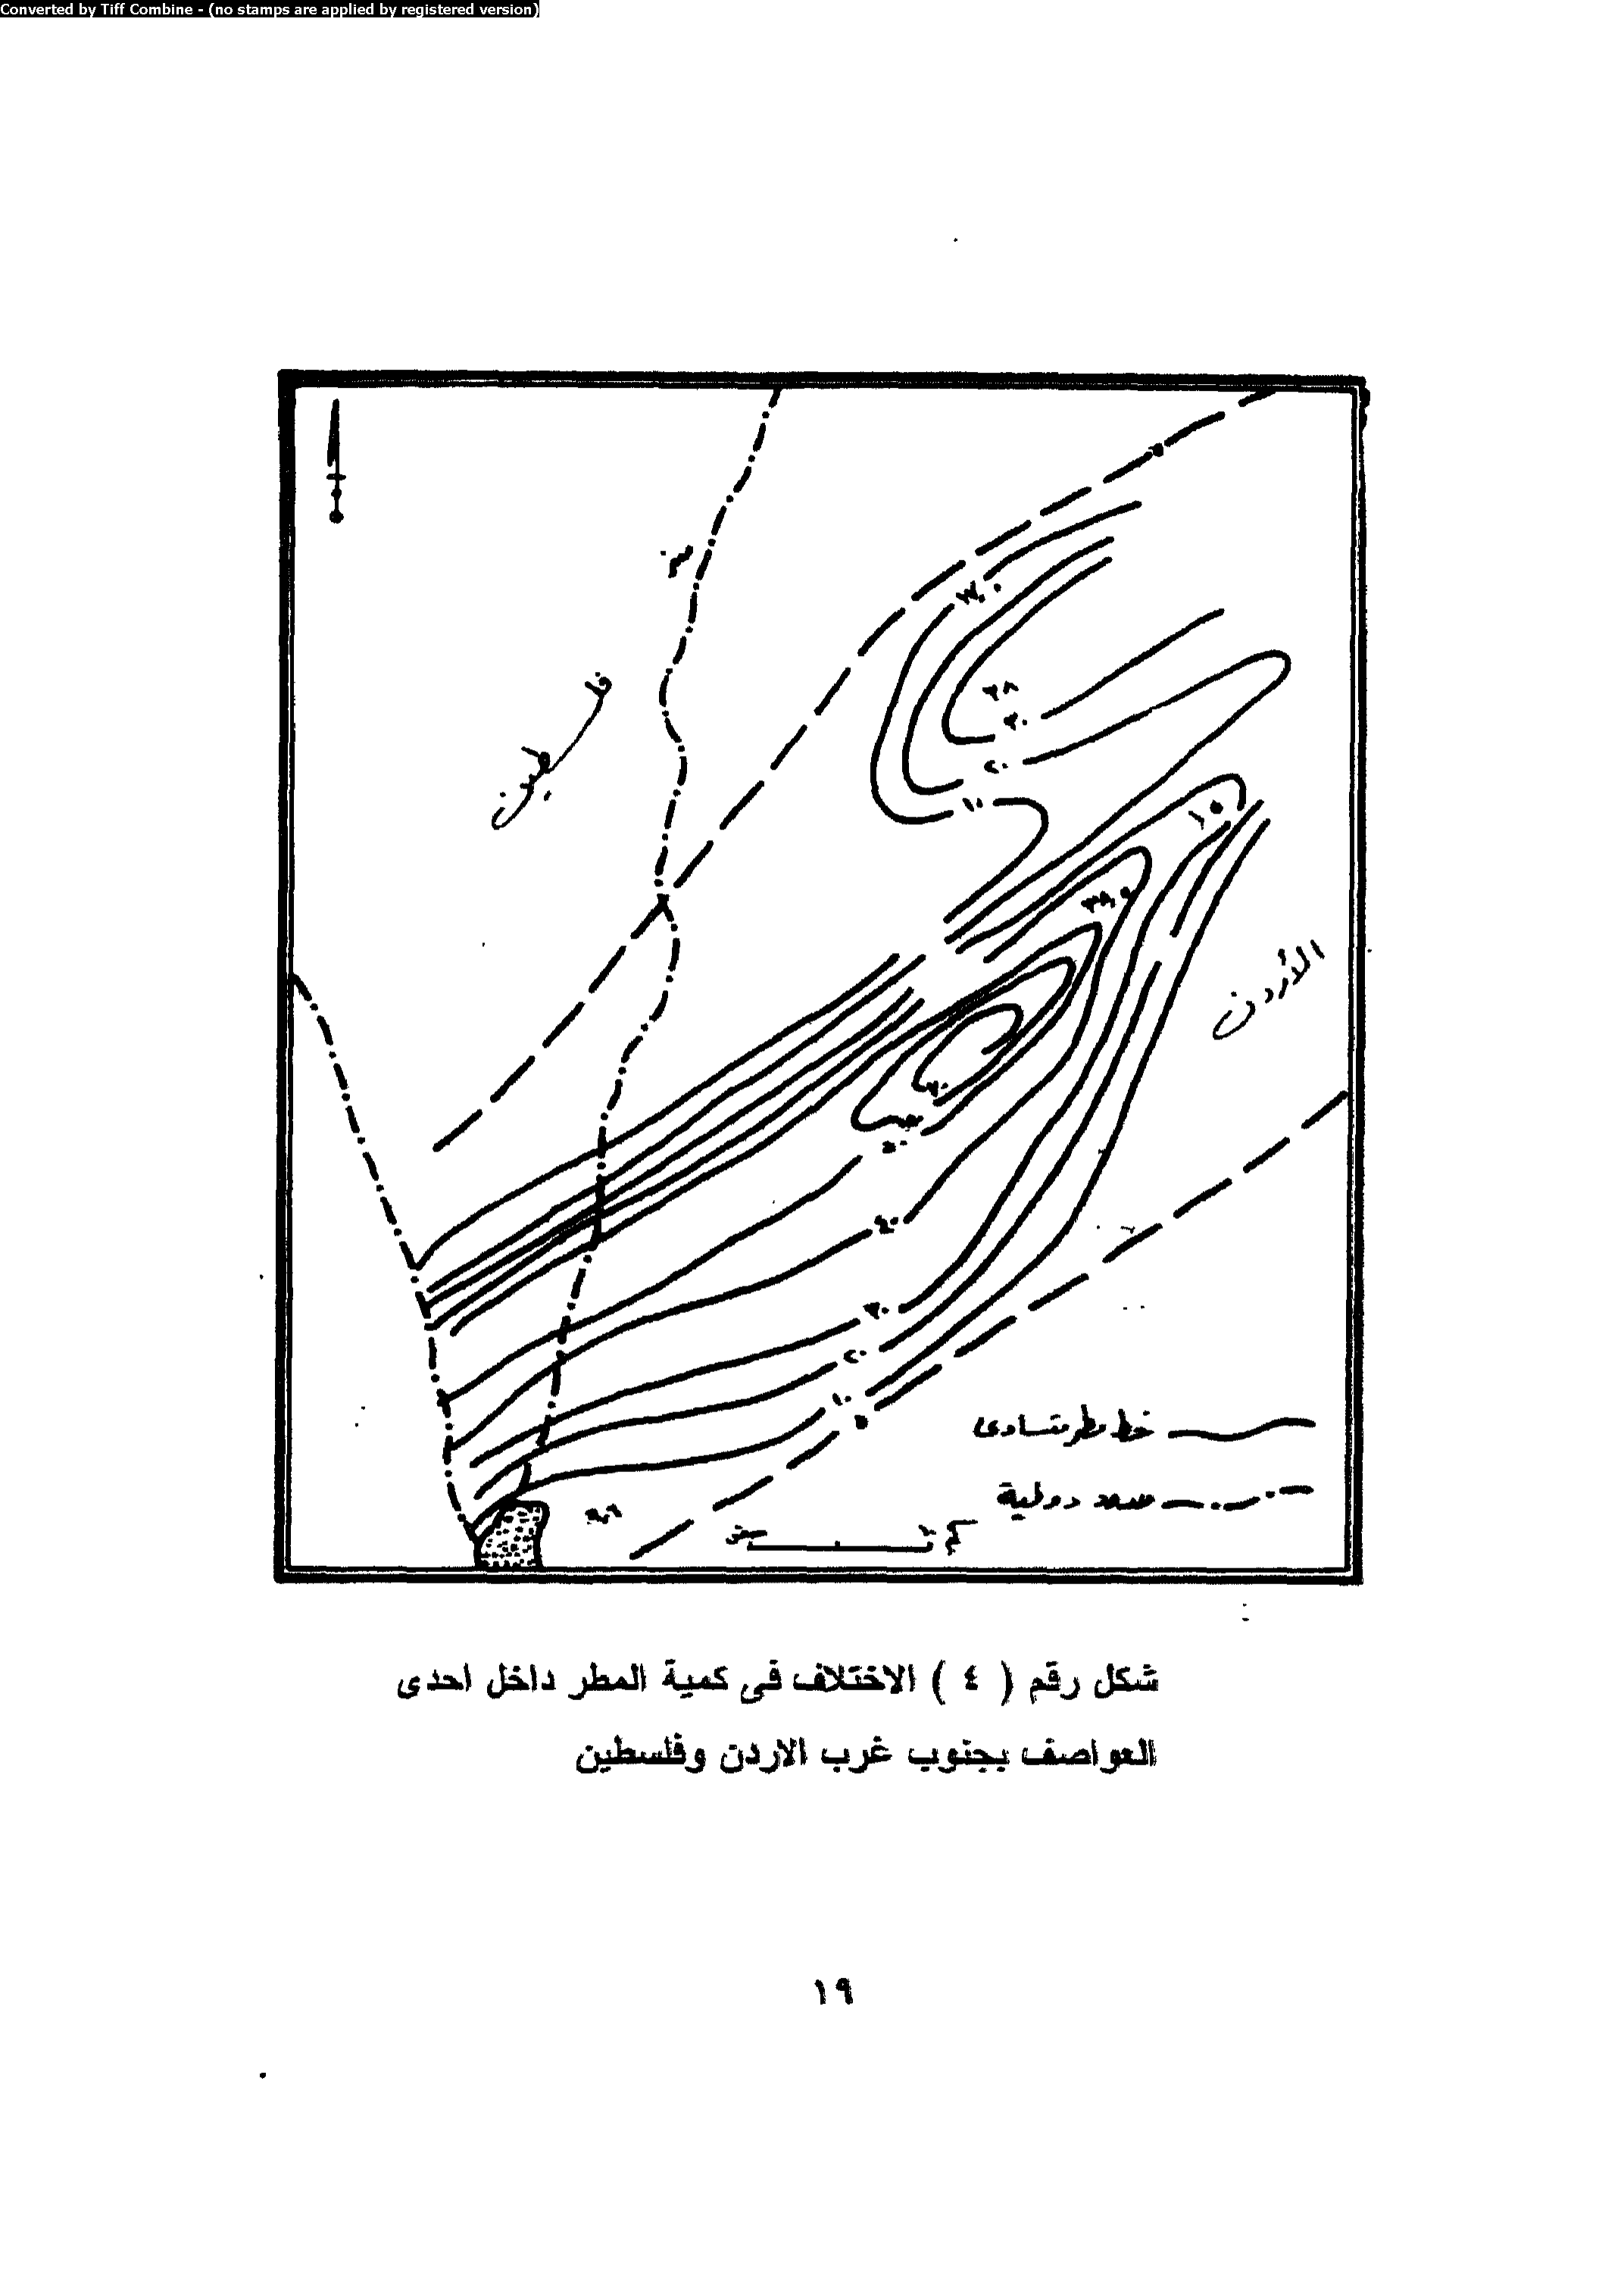 Converted by Tiff Combine - (no stamps are applied by registered version)
فلسطين
٢٨
٣٠
٢٠
١٠
١٥
الأردن
٥٠
٤٠
٣٠
٢٠
١٠
خط مطر متساوى
حدود دولية
كم
شكل رقم ( ٤ ) الاختلاف فى كمية المطر داخل احدى
العواصف بجنوب غرب الاردن وفلسطين
١٩